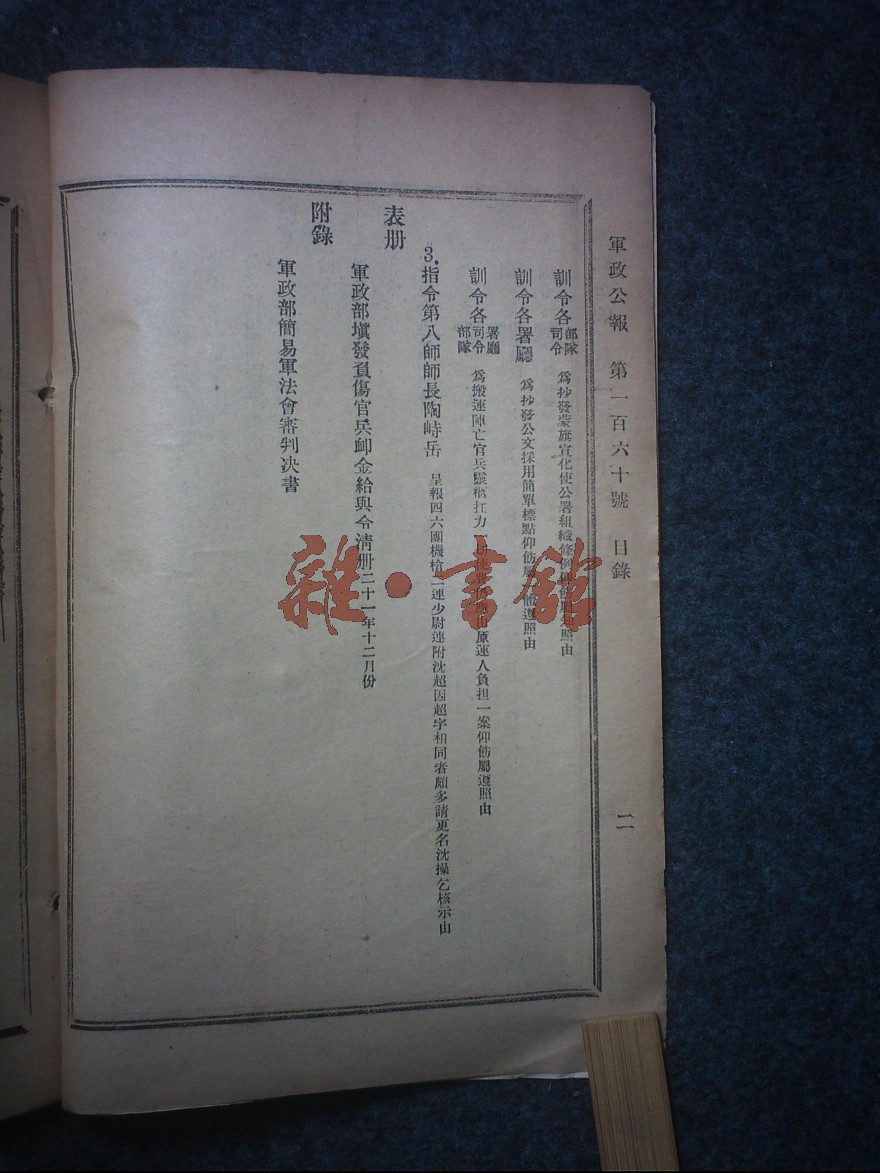 軍政公報 第一百六十號 目錄 二
訓令各部隊司令 爲抄發蒙旗宣化使公署組織條例仰飭屬知照由
訓令各署廳 爲抄發公文採用簡單標點仰飭屬一體遵照由
訓令各署廳司令部隊 爲搬運陣亡官兵靈柩扛力 由原運人負担一案仰飭屬遵照由
3.指令第八師師長陶峙岳 呈報四六團機槍二連少尉連附沈超因超字相同者頗多請更名沈操乞核示由
表册
軍政部塡發負傷官兵卹金給與令清册二十一年十二月份
附錄
軍政部簡易軍法會審判决書
雜·書館